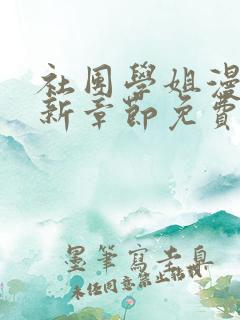 社團學姐漫
新章節免費
墨筆寫春息
未任同意禁止轉載